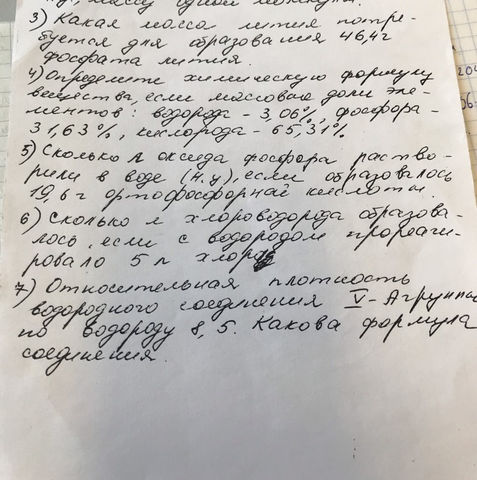 массу одной молекулы.
3) Какая масса лития потре-
буется для образования 46,4г
фосфата лития.
4) Определите химическую формулу
вещества, если массовые доли эле-
ментов: водорода - 3,06%, фосфора-
31,63%, кислорода - 65,31%
5) Сколько л оксида фосфора раство-
рили в воде (н.у), если образовалось
19,6 г ортофосфорной кислоты.
6) Сколько л хлороводорода образова-
лось, если с водородом прореаги-
ровало 5 л хлора
7) Относительная плотность
водородного соединения V-А группы
по водороду 8,5. Какова формула
соединения.